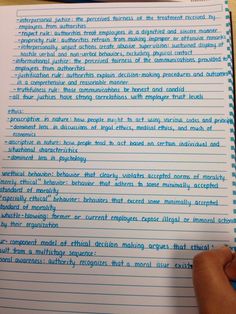 - interpersonal justice: the perceived fairness of the treatment received by
employees from authorities
- respect rule: authorities treat employees in a dignified and sincere manner
- propriety rule: authorities refrain from making improper or offensive remarks
- interpersonally unjust actions create abusive supervision: sustained display of
hostile verbal and non-verbal behaviors, excluding physical contact
- informational justice: the perceived fairness of the communications provided to
employees from authorities
- justification rule: authorities explain decision-making procedures and outcomes
in a comprehensive and reasonable manner.
- truthfulness rule: those communications be honest and candid
- all four justices have strong correlations with employee trust levels
ethics:
- prescriptive in nature: how people ought to act using various codes and principles
- dominant lens in discussions of legal ethics, medical ethics, and much of
economics
- descriptive in nature: how people tend to act based on certain individual and
situational characteristics
- dominant lens in psychology
unethical behavior: behavior that clearly violates accepted norms of morality
"merely ethical" behavior: behavior that adheres to some minimally accepted
standard of morality
"especially ethical" behaviors: behaviors that exceed some minimally accepted
standard of morality
whistle-blowing: former or current employees expose illegal or immoral actions
by their organization
component model of ethical decision making argues that ethical
result from a multistage sequence:
moral awareness: authority recognizes that a moral issue exists